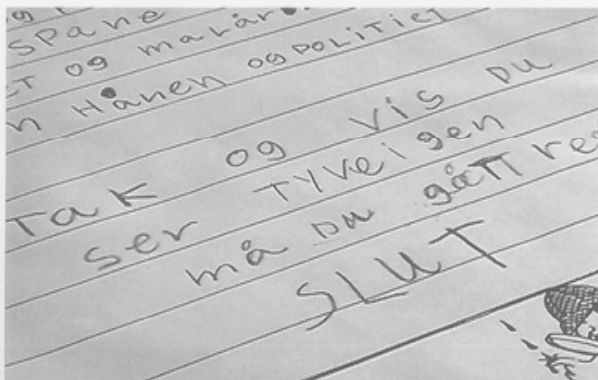 SPane
og maurår
n Hånen og POLITIET
Tak og vis Du
ser TYVeigen
må Du gåTT
SLUT